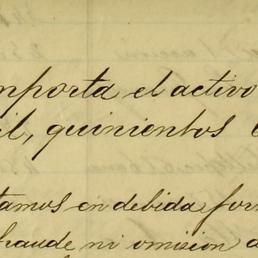 importa el activo
il, quinientos
tamos en debida for
fraude ni omision a